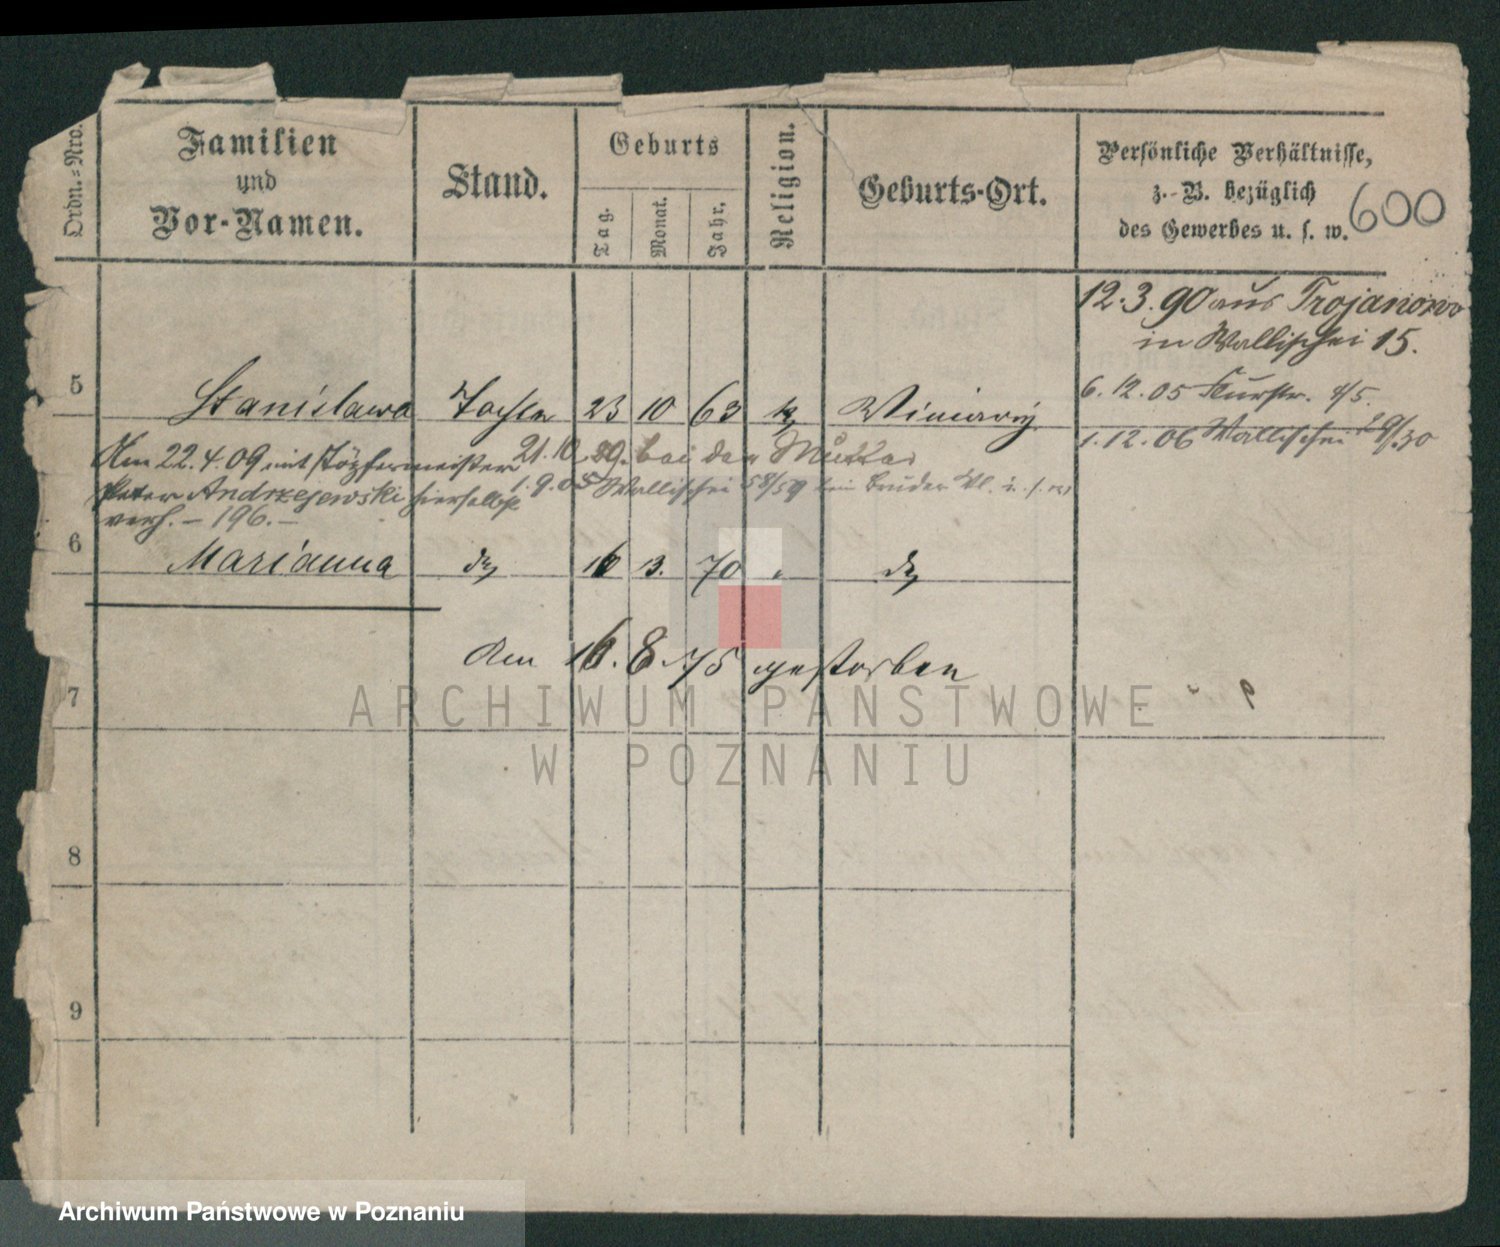 Ordn.-Nro.
Familien
und
Vor-Namen.
Stand.
Geburts
Tag.
Monat.
Jahr.
Religion.
Geburts-Ort.
Persönliche Verhältnisse,
z. B. bezüglich
des Gewerbes u. s. w.
600
12.3.90 aus Trojanowo
in Wallischei 15.
5 Stanislawa Tochter 23 10 63 Winiary
6.12.05
1.12.06 Wallischei 29/30
Am 22.4.09 mit Töpfermeister
21.10.89. bei der Mutter
Peter Andrzejewski hierselbst
1.9.05 Wallischei 58/59 beim Bruder
verh. – 196. –
6 Marianna do 3. 70 " do
Am 16.8.75 gestorben
7
8
9
ARCHIWUM PAŃSTWOWE
W POZNANIU
Archiwum Państwowe w Poznaniu